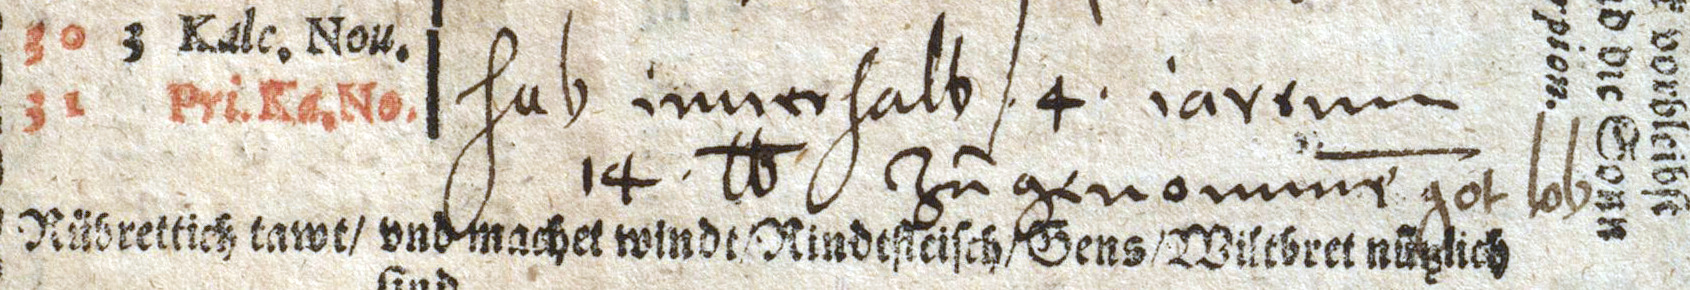 30 3 Kalc. Nou.
31 Pri. Ka. No.
hab innerhalb .4. iarenn
14 . ℔ zu genommē got lob
Rübrettich tawt/ vnd machet windt/Rindtfleisch/Gens/Wiltbret nützlich
sind
rpion.
d die Sonn
vorbleibst